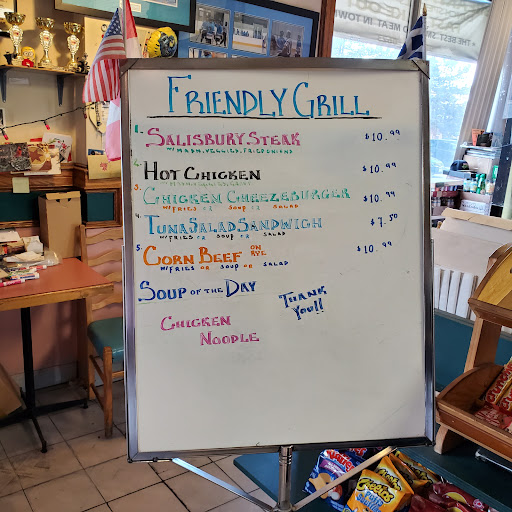 FRIENDLY GRILL
1. SALISBURY STEAK $10.99
W/MASH, VEGGIES, FRIED ONIONS
2. HOT CHICKEN $10.99
3. CHICKEN CHEEZEBURGER $10.99
W/FRIES OR SOUP OR SALAD
4. TUNA SALAD SANDWICH $7.50
W/FRIES OR SOUP OR SALAD
5. CORN BEEF ON RYE $10.99
W/FRIES OR SOUP OR SALAD
SOUP OF THE DAY
THANK YOU!!
CHICKEN
NOODLE